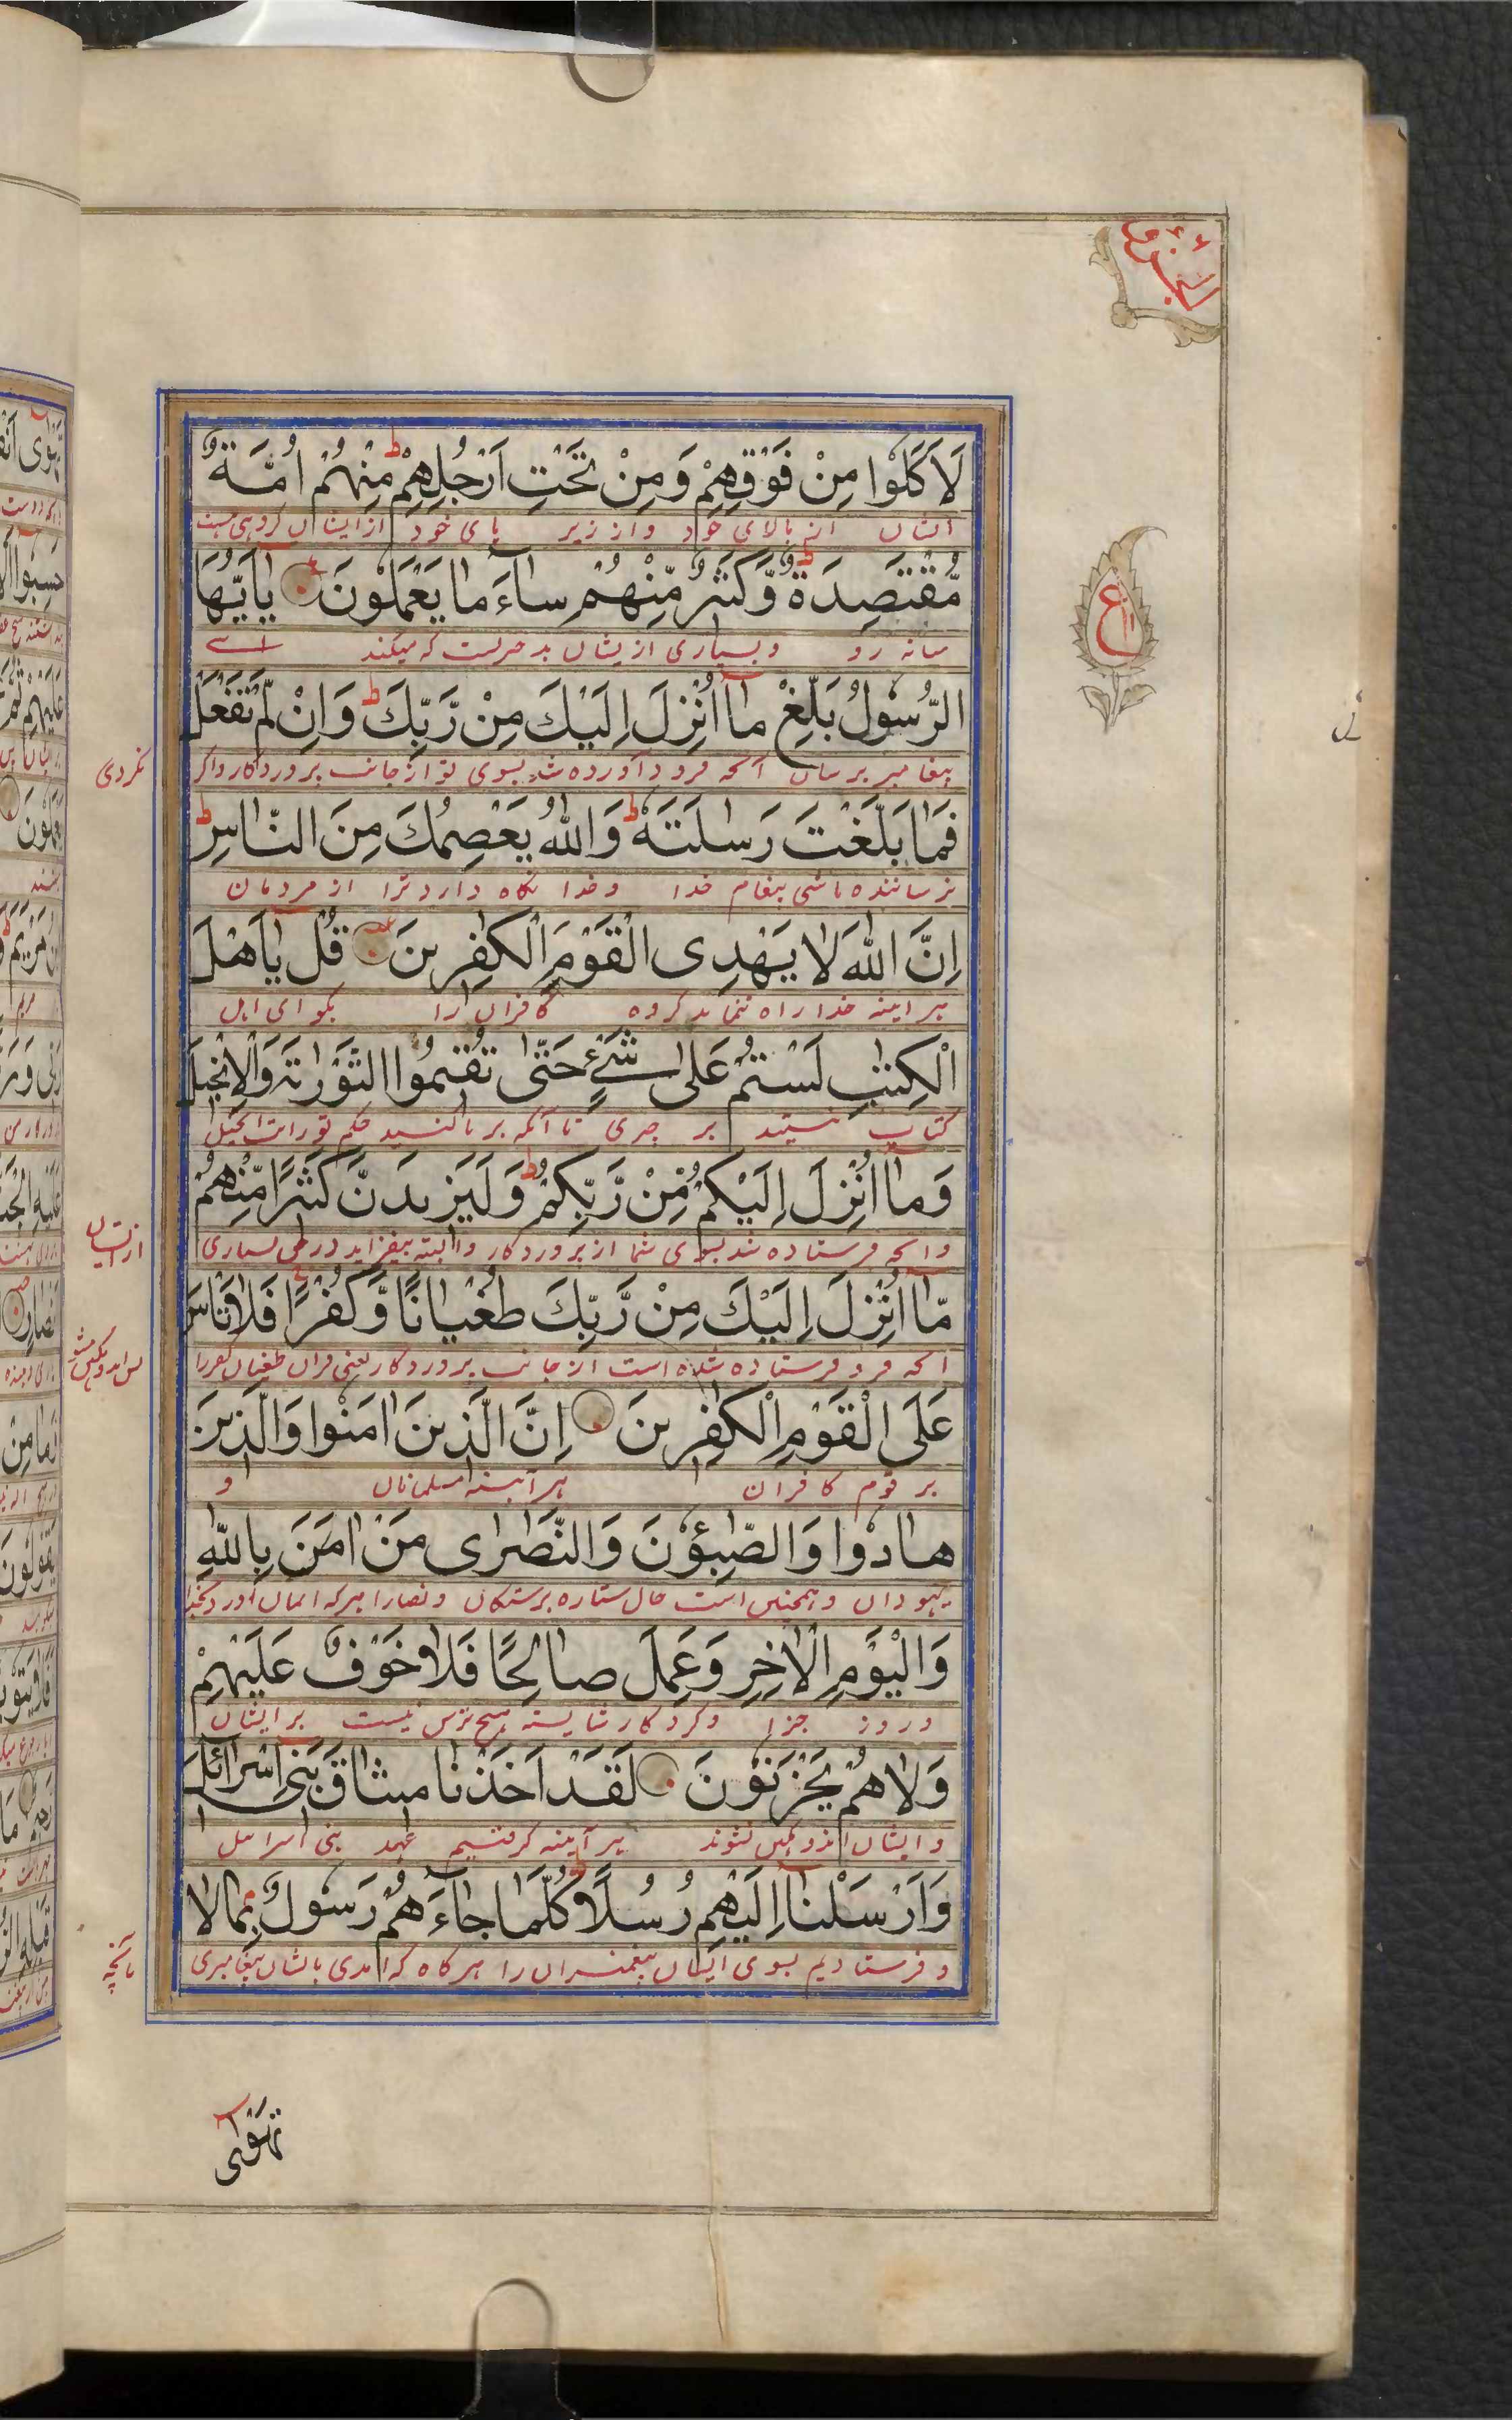 لَاَكَلُوْا مِنْ فَوْقِهِمْ وَمِنْ تَحْتِ اَرْجُلِهِمْ ط مِنْهُمْ اُمَّةٌ
ایشان از بالای خود و از زیر پای خود از ایشان گروهی هست
مُّقْتَصِدَةٌ ط وَكَثِيْرٌ مِّنْهُمْ سَاۤءَ مَا يَعْمَلُوْنَ يٰۤاَيُّهَا
میانه رو و بسیاری از یشان بد چیزیست که میکنند اے
الرَّسُوْلُ بَلِّغْ مَاۤ اُنْزِلَ اِلَيْكَ مِنْ رَّبِّكَ ط وَاِنْ لَّمْ تَفْعَلْ
پیغامبر برسان آنچه فرود آورده شد بسوی تو از جانب پروردگار و اگر
نکردی
فَمَا بَلَّغْتَ رِسٰلَتَهٗ ط وَاللّٰهُ يَعْصِمُكَ مِنَ النَّاسِ ط
نرساننده باشی پیغام خدا و خدا نگاه دارد ترا از مردمان
اِنَّ اللّٰهَ لَا يَهْدِى الْقَوْمَ الْكٰفِرِيْنَ قُلْ يٰۤاَهْلَ
هر اینه خدا راه ننماید گروه کافران را بگو ای اهل
الْكِتٰبِ لَسْتُمْ عَلٰى شَيْءٍ حَتّٰى تُقِيْمُوا التَّوْرٰىةَ وَالْاِنْجِيْلَ
کتاب نیستید بر چیزی تا آنکه برپا کنید حکم تورات انجیل
وَمَاۤ اُنْزِلَ اِلَيْكُمْ مِّنْ رَّبِّكُمْ ط وَلَيَزِيْدَنَّ كَثِيْرًا مِّنْهُمْ
و آنچه فرستاده شد بسوی شما از پروردگار و البته بیفزاید در حق بسیاری
از ایشان
مَّاۤ اُنْزِلَ اِلَيْكَ مِنْ رَّبِّكَ طُغْيَانًا وَّكُفْرًا فَلَا تَاْسَ
آنچه فرو فرستاده شده است از جانب پروردگار یعنی قران طغیان کفر را
عَلَى الْقَوْمِ الْكٰفِرِيْنَ اِنَّ الَّذِيْنَ اٰمَنُوْا وَالَّذِيْنَ
بر قوم کافران هر آینه مسلمانان و
هَادُوْا وَالصّٰبِئُوْنَ وَالنَّصٰرٰى مَنْ اٰمَنَ بِاللّٰهِ
یهودان و همچنین است حال ستاره پرستگان و نصارا هر که ایمان آورد بخدا
وَالْيَوْمِ الْاٰخِرِ وَعَمِلَ صَالِحًا فَلَا خَوْفٌ عَلَيْهِمْ
و روز جزا و کرد کار شایسته هیچ ترس نیست بر ایشان
وَلَا هُمْ يَحْزَنُوْنَ لَقَدْ اَخَذْنَا مِيْثَاقَ بَنِىْ اِسْرَاۤئِيْلَ
و ایشان اندوهگین نشوند هر آینه گرفتیم عهد بنی اسرائیل
وَاَرْسَلْنَاۤ اِلَيْهِمْ رُسُلًا ط كُلَّمَا جَاۤءَهُمْ رَسُوْلٌ بِمَا لَا
و فرستادیم بسوی ایشان پیغمبران را هر گاه که آمدی بایشان پیغامبری
بآنچه
تَهْوٰۤى